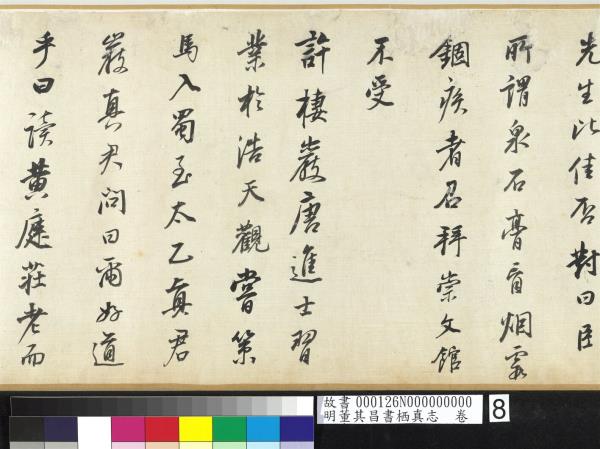 先生比佳否對曰臣
所謂泉石膏肓烟霞
錮疾者召拜崇文館
不受
許棲巖唐進士習
業於浩天觀嘗策
馬入蜀至太乙真君
巖真君問曰爾好道
乎曰讀黃庭莊老而
故書 000126N000000000
明董其昌書栖真志 卷
8